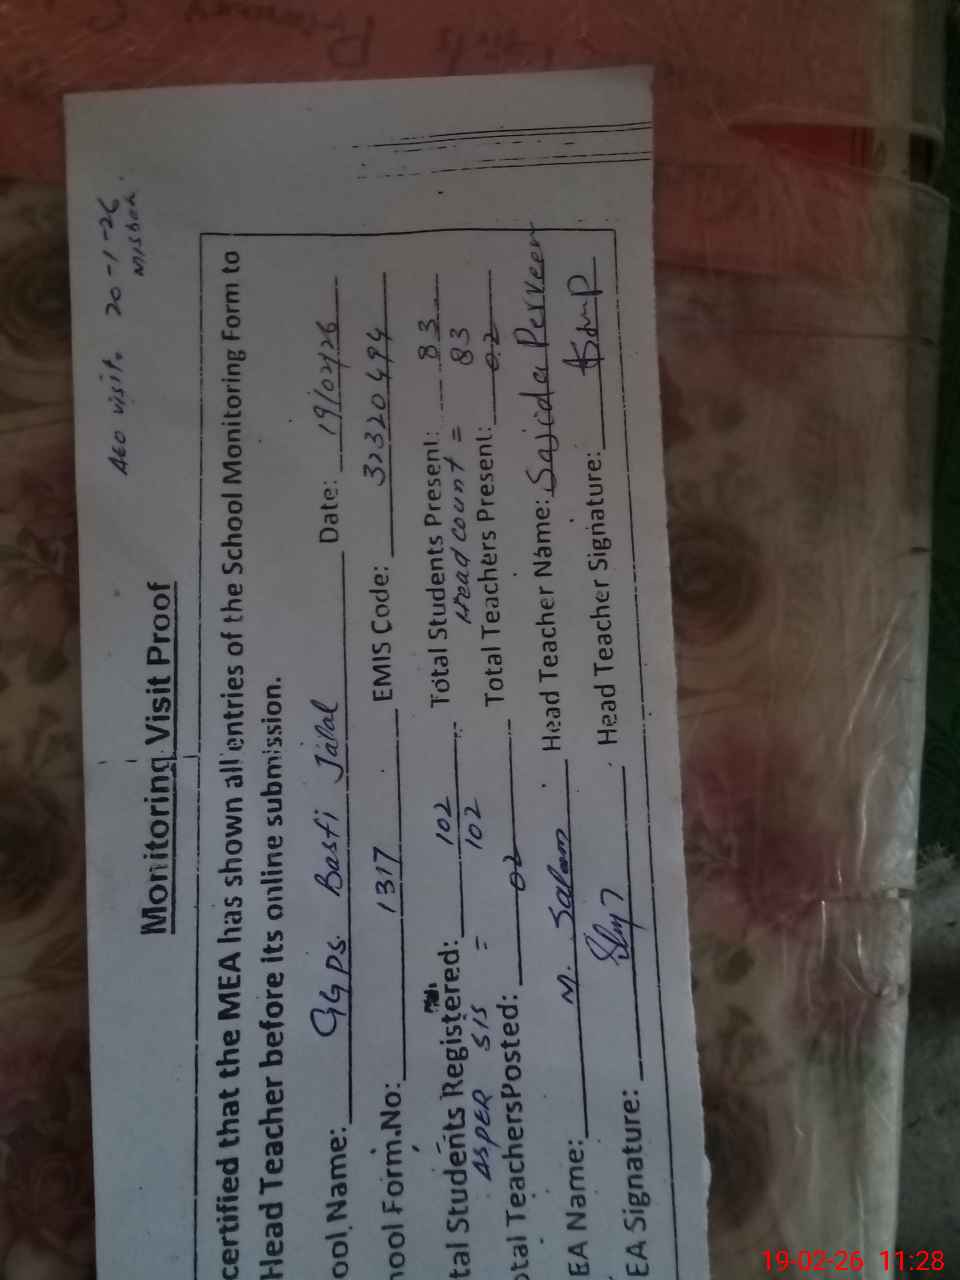 AEO visit. 20-1-26
Misbah
Monitoring Visit Proof
certified that the MEA has shown all entries of the School Monitoring Form to
Head Teacher before its online submission.
ool Name: GGPS. Basti Jalal Date: 19/02/26
hool Form.No: 1317 EMIS Code: 32320494
tal Students Registered: 102 Total Students Present: 83
ASPER SIS = 102 Head count = 83
otal TeachersPosted: 02 Total Teachers Present: 02
EA Name: M. Saleem Head Teacher Name: Sajida Perveen
EA Signature: Head Teacher Signature:
19-02-26 11:28